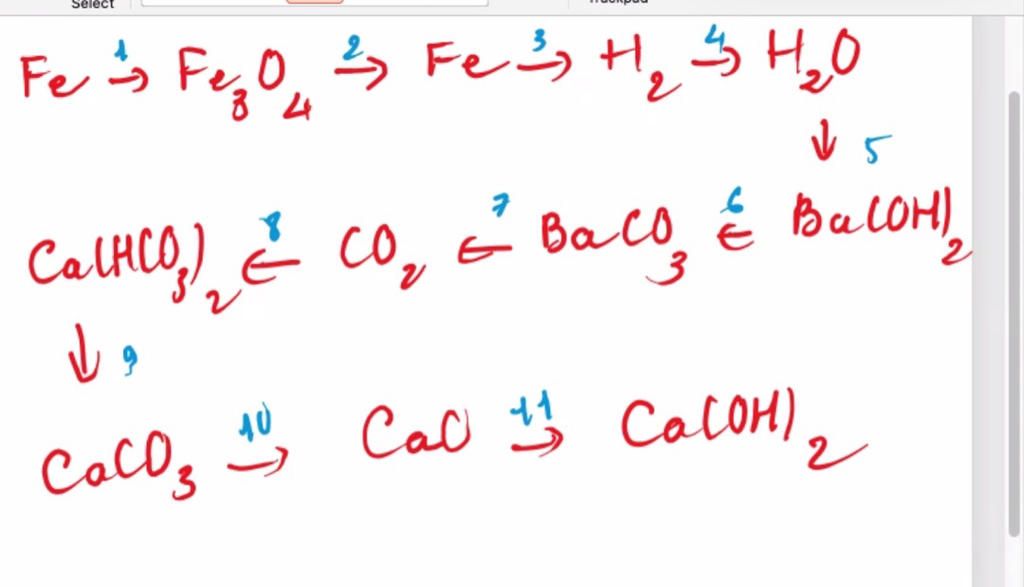 Select Trackpad
Fe 1→ Fe₃O₄ 2→ Fe 3→ H₂ 4→ H₂O
↓ 5
Ca(HCO₃)₂ 8← CO₂ 7← BaCO₃ 6← Ba(OH)₂
↓ 9
CaCO₃ 10→ CaO 11→ Ca(OH)₂